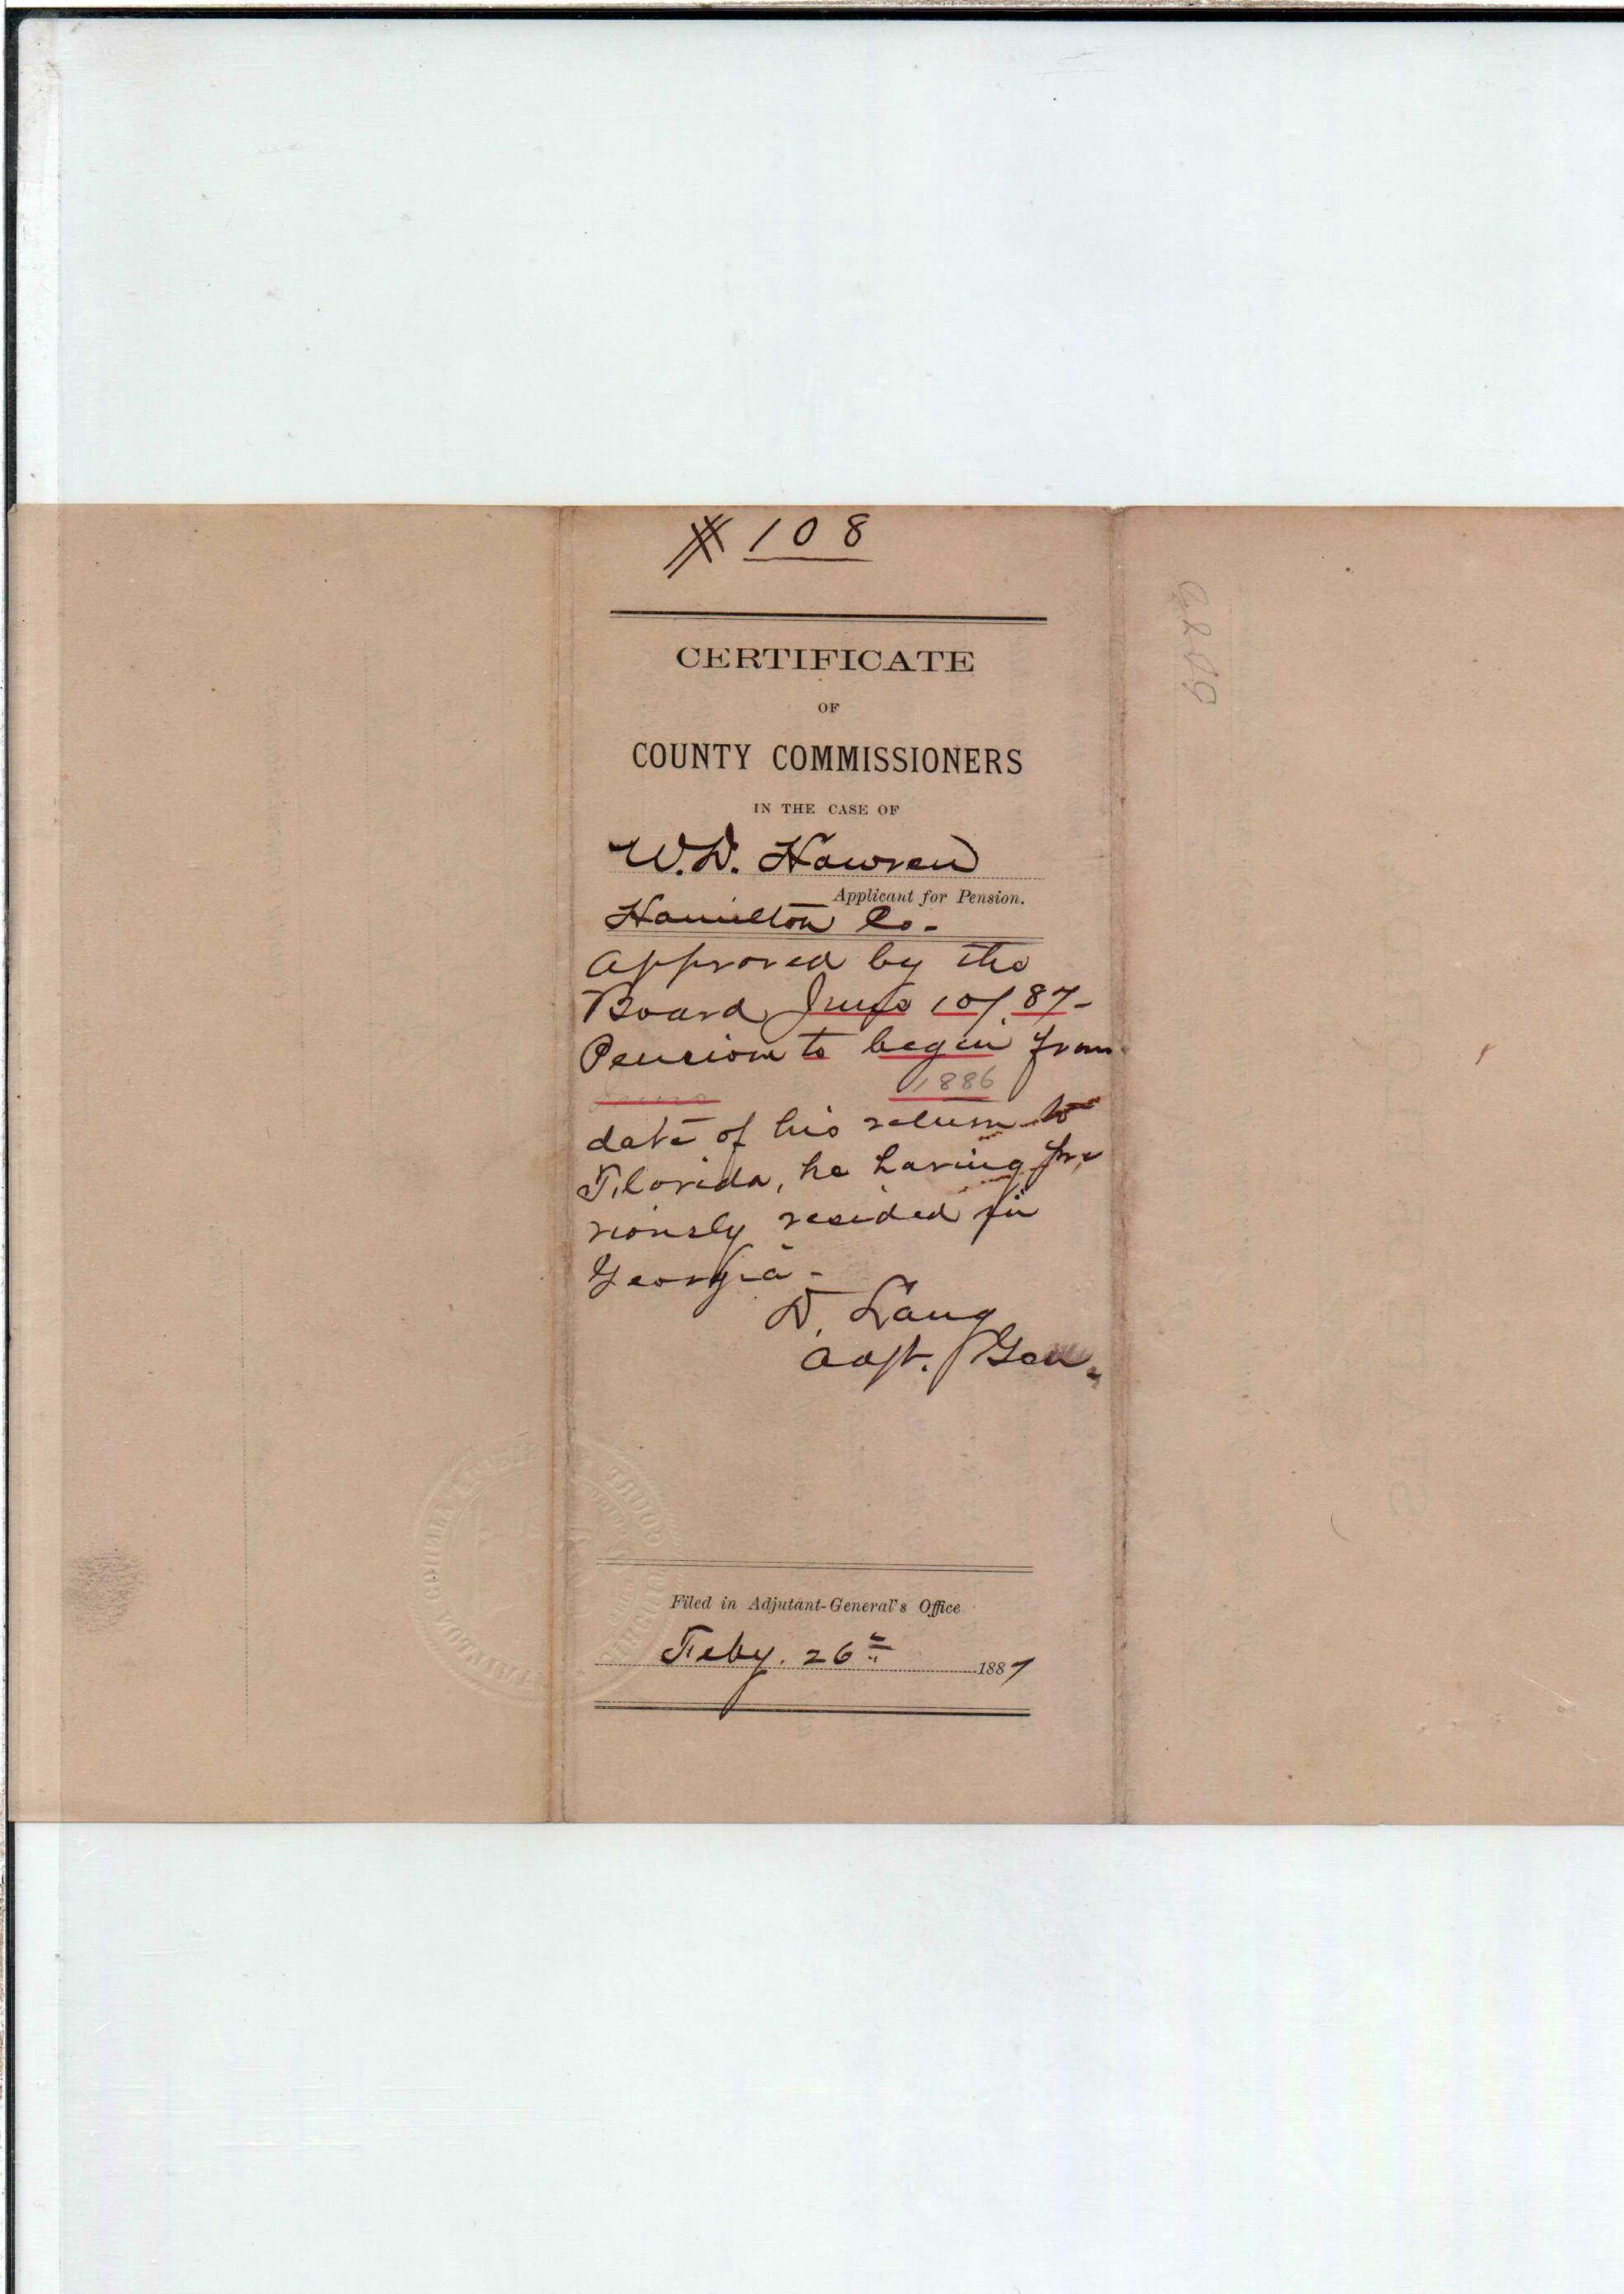 # 108
CERTIFICATE
OF
COUNTY COMMISSIONERS
IN THE CASE OF
W.D. Hawren
Applicant for Pension.
Hamilton Co.
approved by the
Board June 10/87-
Pension to begin from
June 1886
date of his return to
Florida, he having pre
viously resided in
Georgia -
D. Lang
Adjt. Gen.
Filed in Adjutant-General's Office
Feby. 26th 1887